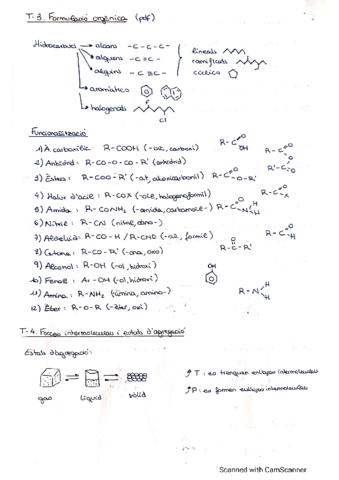 T-3. Formulació orgànica (pdf)
Hidrocarburs → alcans -C-C-C-
→ alquens -C=C-
→ alquins -C≡C-
lineals
ramificats
cíclics
→ aromàtics
→ halogenats
Cl
Funcionalització
1) À. carboxílic: R-COOH (-oic, carboxi)
2) Anhídrid: R-CO-O-CO-R' (anhídrid)
3) Èster: R-COO-R' (-at, alcoxicarbonil)
4) Halur d'acil: R-COX (-oil, halogenoformil)
5) Amida: R-CONH₂ (-amida, carbamoil-)
6) Nitril: R-CN (nitril, ciano-)
7) Aldehid: R-CO-H / R-CHO (-al, formil)
8) Cetona: R-CO-R' (-ona, oxo)
9) Alcohol: R-OH (-ol, hidroxi)
10) Fenol: Ar-OH (-ol, hidroxi)
11) Amina: R-NH₂ (-amina, amino-)
12) Èter: R-O-R (-èter, oxi)
T-4. Forces intermoleculars i estats d'agregació
Estats d'agregació:
gas líquid sòlid
↑T: es trenquen enllaços intermoleculars
↑P: es formen enllaços intermoleculars
Scanned with CamScanner